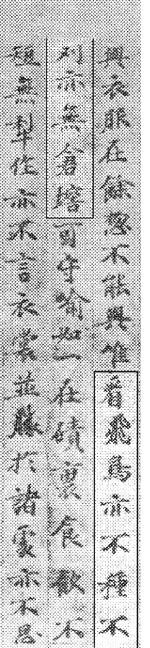 與衣服在餘忽不能與唯暜飛鳥亦不種不
列亦無倉𡑞可守喻如一在磧裏食飲不
短無犁作亦不言衣裳並勝於諸處亦不忌